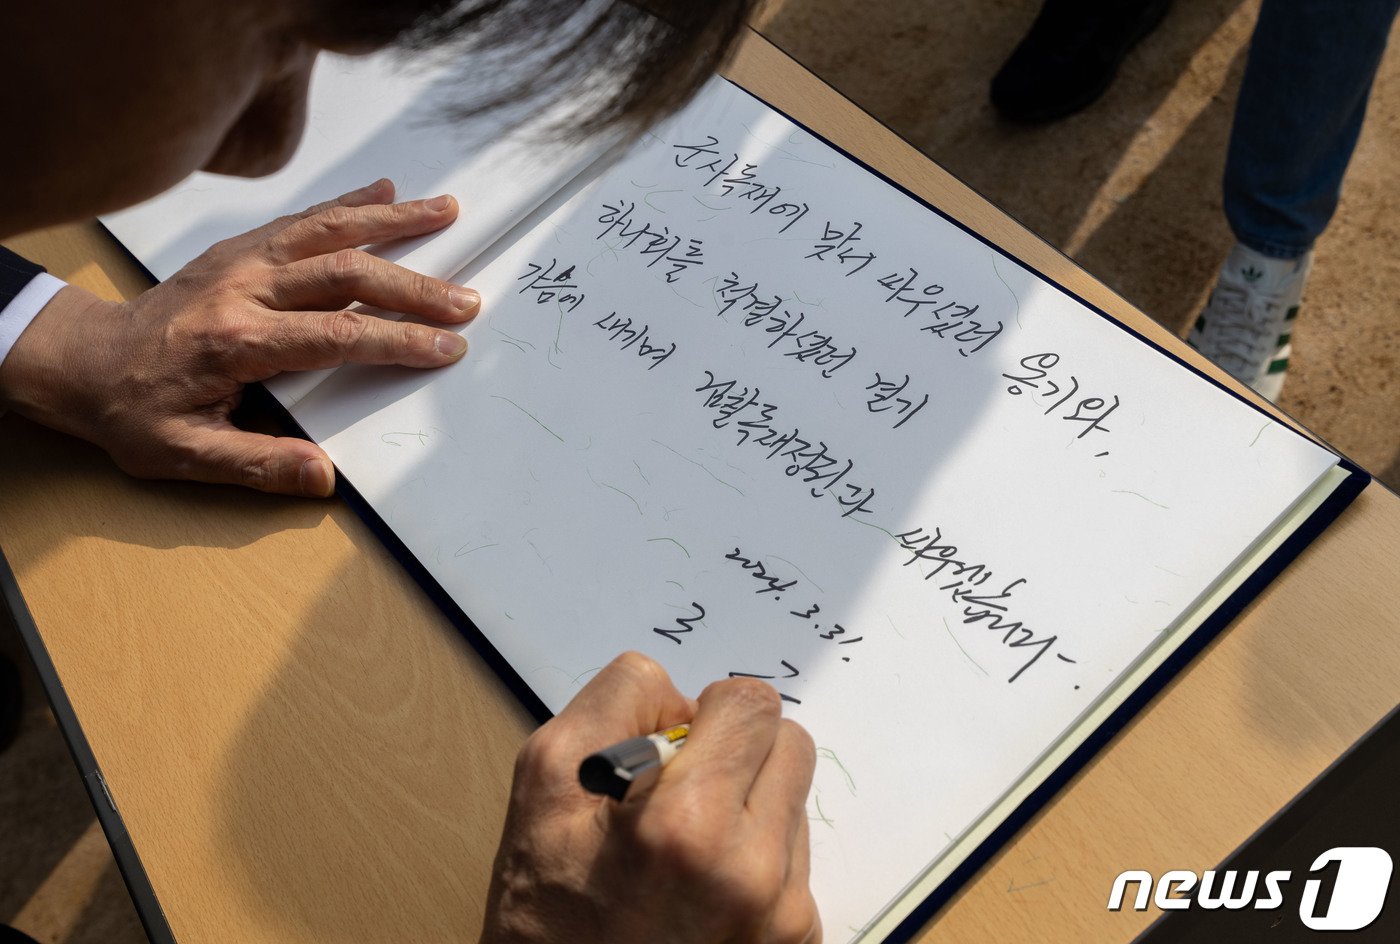 군사독재에 맞서 싸우셨던 용기와,
하나회를 척결하셨던 결기
가슴에 새기며 검찰독재정권과
싸우겠습니다.
2024. 3. 31.
조
news1